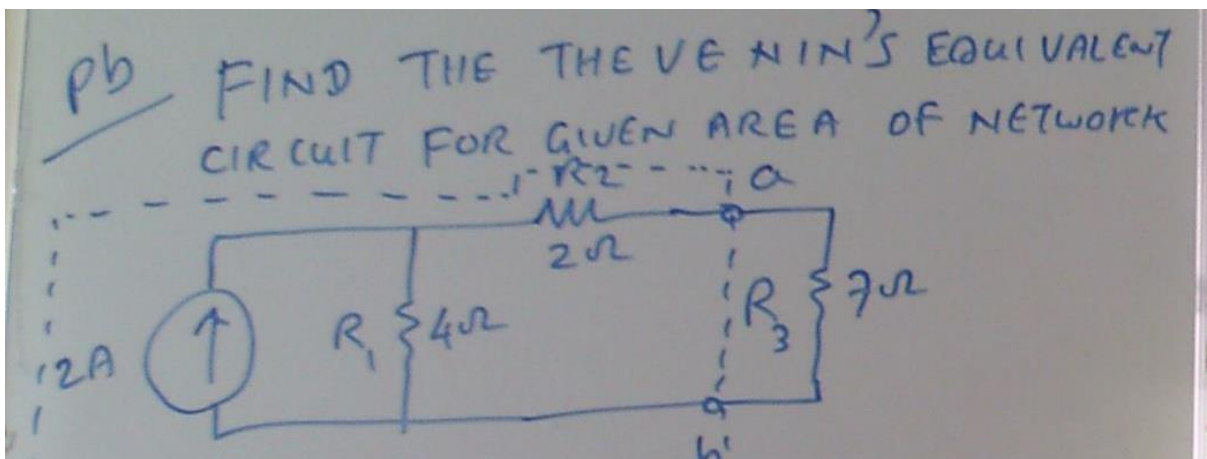 pb FIND THE THEVENIN'S EQUIVALENT
CIRCUIT FOR GIVEN AREA OF NETWORK
R2 a
2Ω
2A R1 4Ω R3 7Ω
b